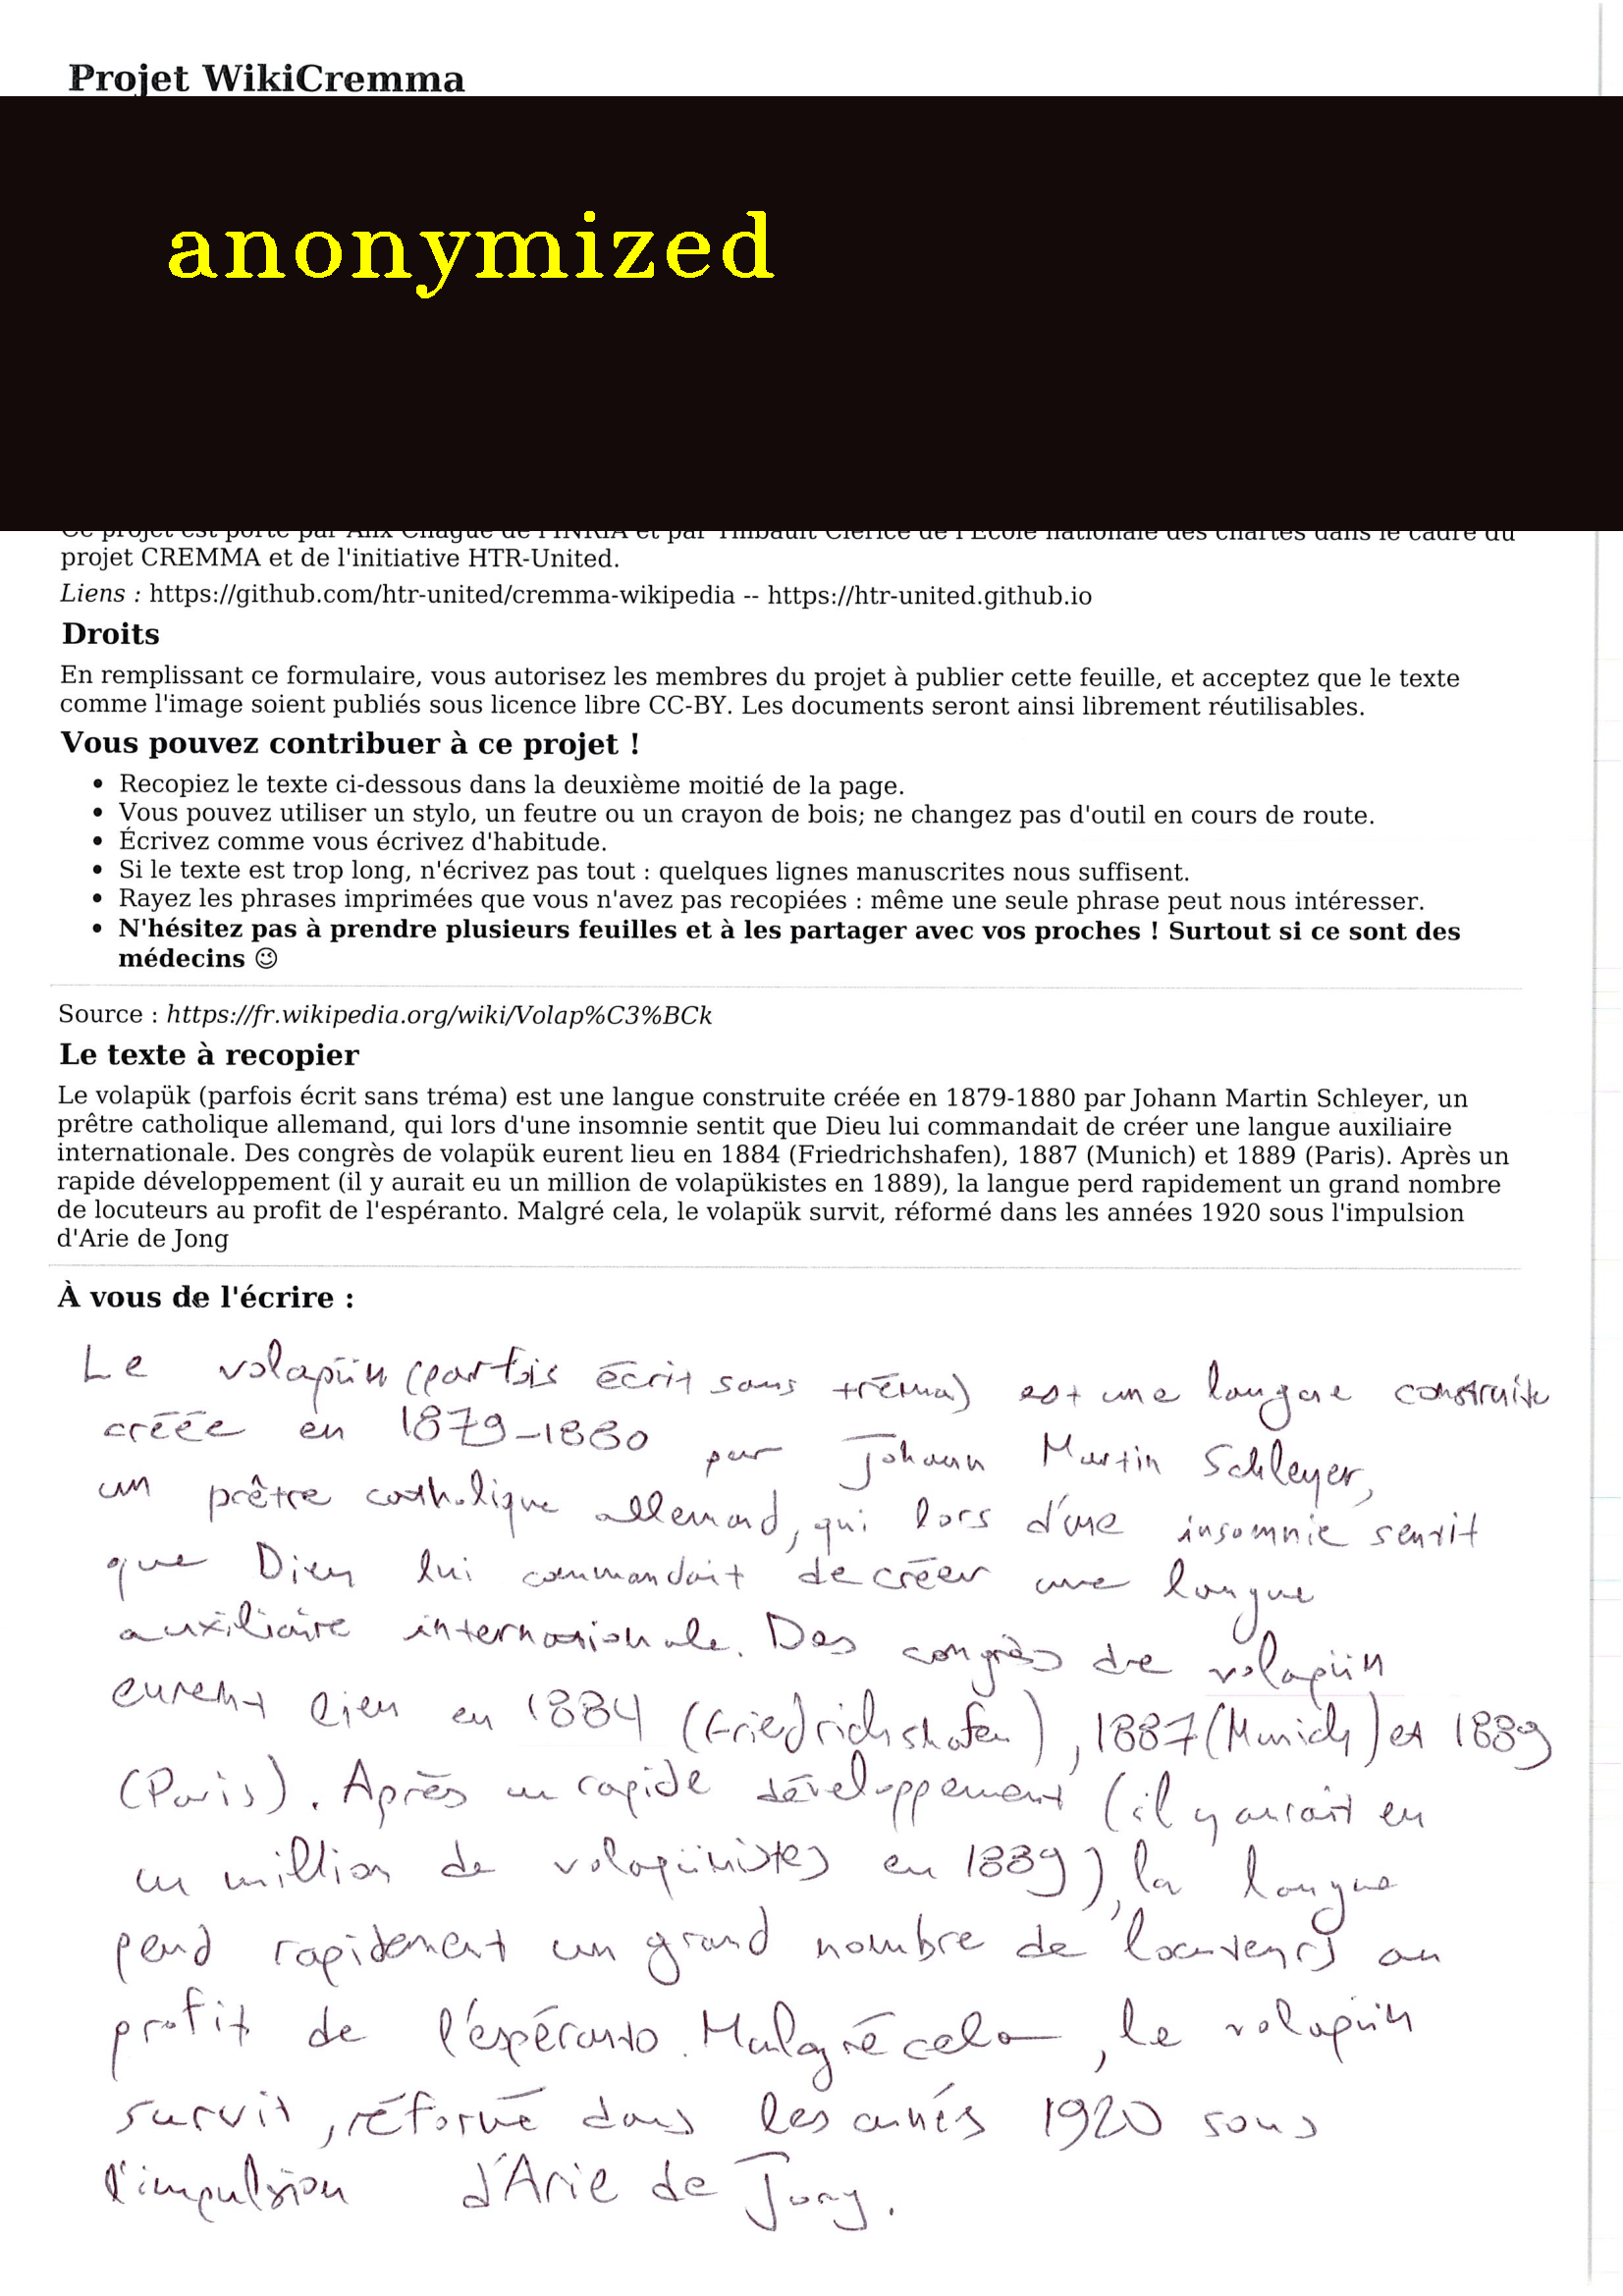 Projet WikiCremma
anonymized
Ce projet est porté par Alix Chagué de l'INRIA et par Thibault Clérice de l'École nationale des chartes dans le cadre du
projet CREMMA et de l'initiative HTR-United.
Liens : https://github.com/htr-united/cremma-wikipedia -- https://htr-united.github.io
Droits
En remplissant ce formulaire, vous autorisez les membres du projet à publier cette feuille, et acceptez que le texte
comme l'image soient publiés sous licence libre CC-BY. Les documents seront ainsi librement réutilisables.
Vous pouvez contribuer à ce projet !
• Recopiez le texte ci-dessous dans la deuxième moitié de la page.
• Vous pouvez utiliser un stylo, un feutre ou un crayon de bois; ne changez pas d'outil en cours de route.
• Écrivez comme vous écrivez d'habitude.
• Si le texte est trop long, n'écrivez pas tout : quelques lignes manuscrites nous suffisent.
• Rayez les phrases imprimées que vous n'avez pas recopiées : même une seule phrase peut nous intéresser.
• N'hésitez pas à prendre plusieurs feuilles et à les partager avec vos proches ! Surtout si ce sont des
médecins ☺
Source : https://fr.wikipedia.org/wiki/Volap%C3%BCk
Le texte à recopier
Le volapük (parfois écrit sans tréma) est une langue construite créée en 1879-1880 par Johann Martin Schleyer, un
prêtre catholique allemand, qui lors d'une insomnie sentit que Dieu lui commandait de créer une langue auxiliaire
internationale. Des congrès de volapük eurent lieu en 1884 (Friedrichshafen), 1887 (Munich) et 1889 (Paris). Après un
rapide développement (il y aurait eu un million de volapükistes en 1889), la langue perd rapidement un grand nombre
de locuteurs au profit de l'espéranto. Malgré cela, le volapük survit, réformé dans les années 1920 sous l'impulsion
d'Arie de Jong
À vous de l'écrire :
Le volapük (parfois écrit sans tréma) est une langue construite
créée en 1879-1880 par Johann Martin Schleyer,
un prêtre catholique allemand, qui lors d'une insomnie sentit
que Dieu lui commandait de créer une langue
auxiliaire internationale. Des congrès de volapük
eurent lieu en 1884 (Friedrichshafen), 1887 (Munich) et 1889
(Paris). Après un rapide développement (il y aurait eu
un million de volapükistes en 1889), la langue
perd rapidement un grand nombre de locuteurs au
profit de l'espéranto. Malgré cela, le volapük
survit, réformé dans les annés 1920 sous
l'impulsion d'Arie de Jong.